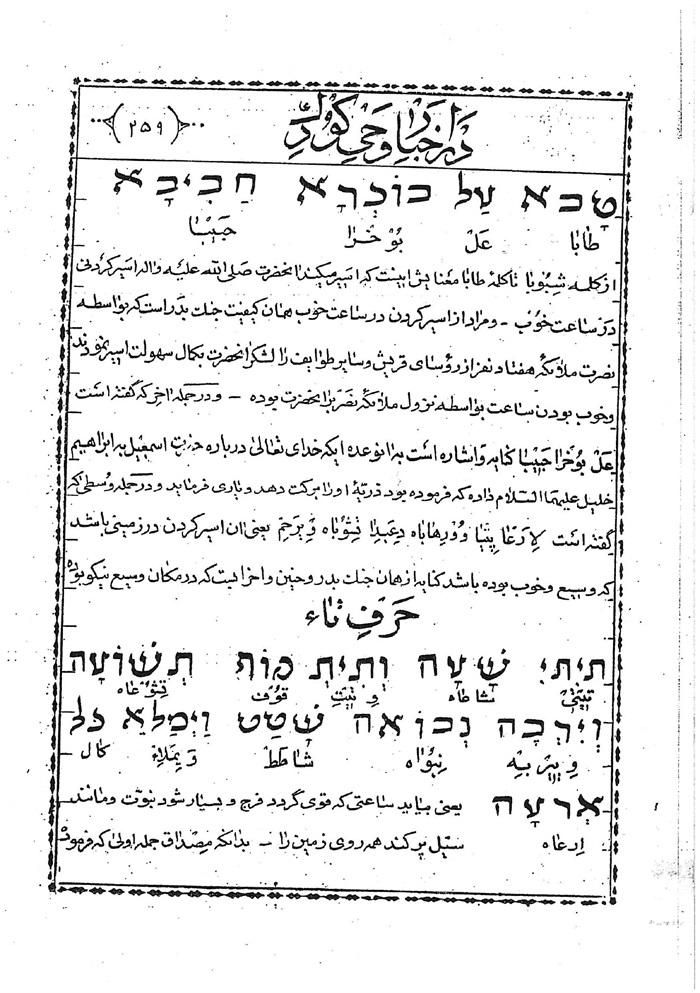 در اخبار از وحی کودک
(۲۵۹)
טָבָא עַל בּוּכְרָא חַבִּיבָא
طابا عَلْ بُوخْرا حَبیبا
از کلمه شِبُویا تا کلمۀ طابا معنایش اینست که اسیر میکند انحضرت صلی الله علیه واله اسیر کردنی
در ساعت خوب - و مراد از اسیر کردن در ساعت خوب همان کیفیت جنك بدر است که بواسطه
نصرت ملائکه هفتاد نفر از رؤسای قریش و سایر طوایف را لشکر انحضرت بکمال سهولت اسیر نمودند
وخوب بودن ساعت بواسطه نزول ملائکه نصر برانحضرت بوده - و در جمله اخر که گفته است
عَلْ بُوخْرا حَبیبا کنایه و اشاره است به انوعده ایکه خدای تعالی درباره حضرت اسمعیل به ابراهیم
خلیل علیهما السلام داده که فرموده بود ذریۀ او را برکت دهد و یاری فرماید و در جمله وسطی که
گفته است یعنی ان اسیر کردن در زمینی باشد
که وسیع وخوب بوده باشد کنایه از همان جنك بدر وحنین واحزابست که در مکان وسیع نیکو بوده
حَرفِ تاء
תֵּיתֵי שָׁעָה וְתֵיתְקוֹף תְּשׁוּעָה
شاطاه قُوف تِشُوعاه
וְיִרְבֶּה נְבוּאָה שָׁטַט וִימַלֵּא כָל
وِییِرْبِه نِبُواه شاطَط وِیمَلاء کال
אַרְעָה یعنی بیاید ساعتی که قوی گردد فرج و بسیار شود نبوّت و مانند
اِرعاه سیل پر کند همه روی زمین را - بدانکه مصداق جمله اولی که فرمود